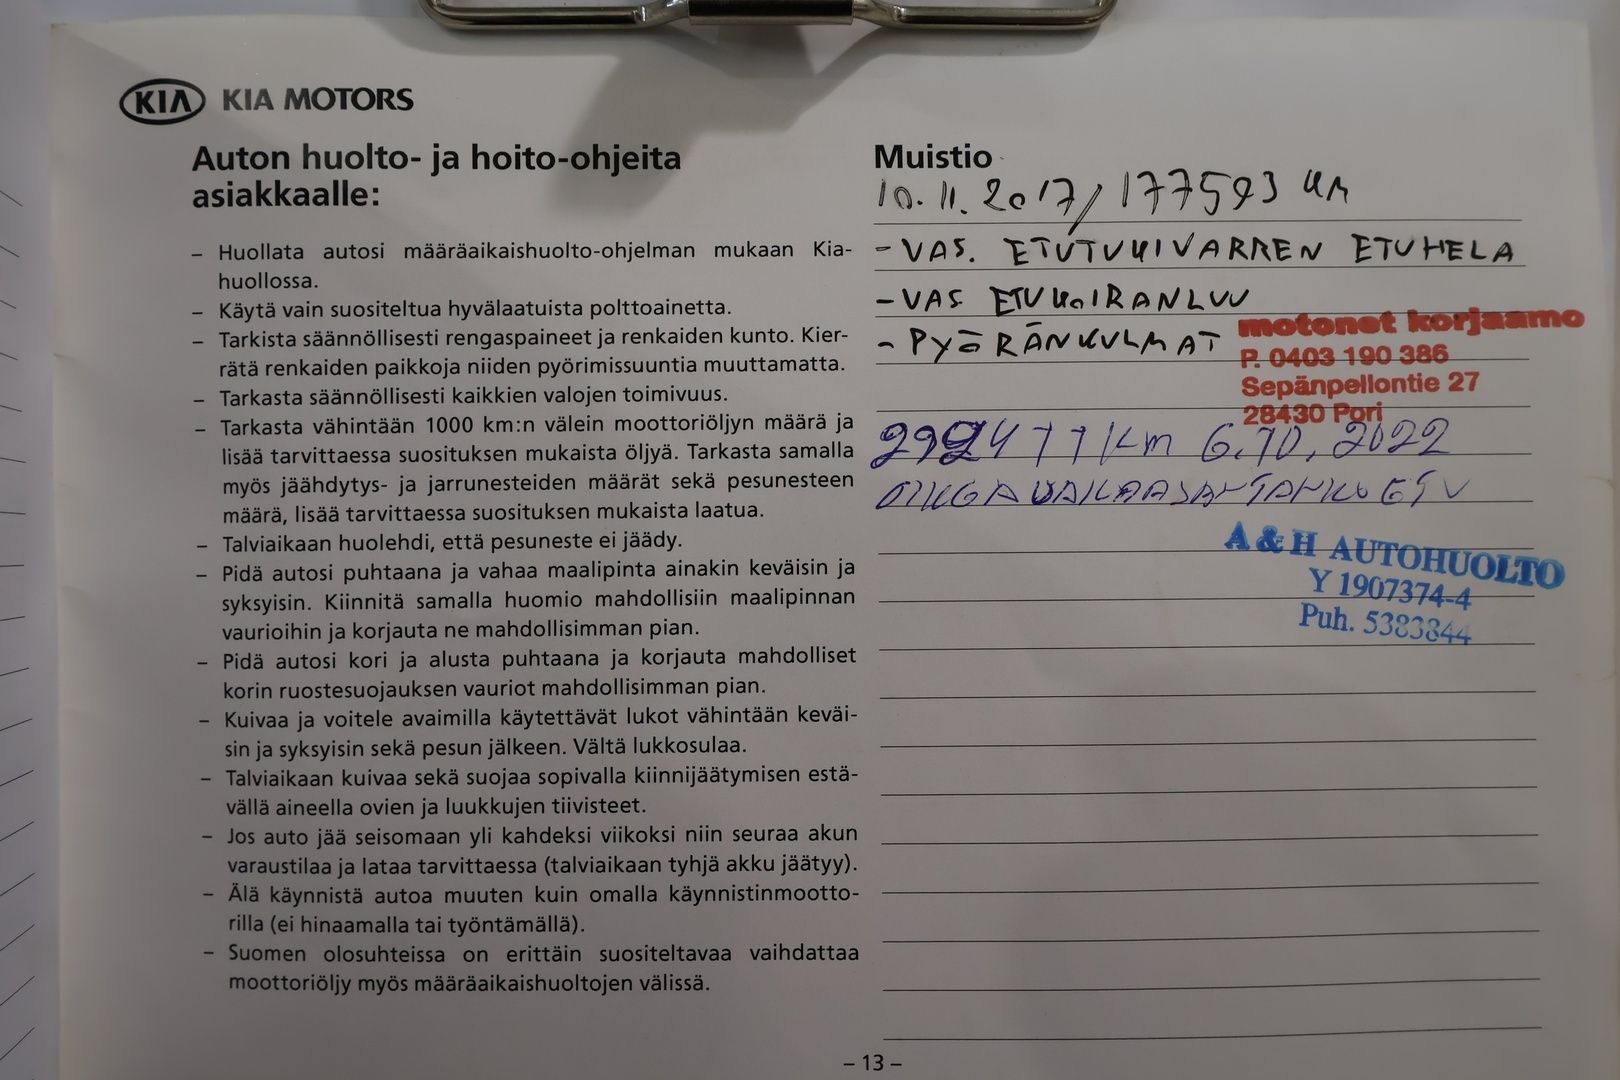 KIA KIA MOTORS
Auton huolto- ja hoito-ohjeita
asiakkaalle:
– Huollata autosi määräaikaishuolto-ohjelman mukaan Kia-
huollossa.
– Käytä vain suositeltua hyvälaatuista polttoainetta.
– Tarkista säännöllisesti rengaspaineet ja renkaiden kunto. Kier-
rätä renkaiden paikkoja niiden pyörimissuuntia muuttamatta.
– Tarkasta säännöllisesti kaikkien valojen toimivuus.
– Tarkasta vähintään 1000 km:n välein moottoriöljyn määrä ja
lisää tarvittaessa suosituksen mukaista öljyä. Tarkasta samalla
myös jäähdytys- ja jarrunesteiden määrät sekä pesunesteen
määrä, lisää tarvittaessa suosituksen mukaista laatua.
– Talviaikaan huolehdi, että pesuneste ei jäädy.
– Pidä autosi puhtaana ja vahaa maalipinta ainakin keväisin ja
syksyisin. Kiinnitä samalla huomio mahdollisiin maalipinnan
vaurioihin ja korjauta ne mahdollisimman pian.
– Pidä autosi kori ja alusta puhtaana ja korjauta mahdolliset
korin ruostesuojauksen vauriot mahdollisimman pian.
– Kuivaa ja voitele avaimilla käytettävät lukot vähintään keväi-
sin ja syksyisin sekä pesun jälkeen. Vältä lukkosulaa.
– Talviaikaan kuivaa sekä suojaa sopivalla kiinnijäätymisen estä-
vällä aineella ovien ja luukkujen tiivisteet.
– Jos auto jää seisomaan yli kahdeksi viikoksi niin seuraa akun
varaustilaa ja lataa tarvittaessa (talviaikaan tyhjä akku jäätyy).
– Älä käynnistä autoa muuten kuin omalla käynnistinmootto-
rilla (ei hinaamalla tai työntämällä).
– Suomen olosuhteissa on erittäin suositeltavaa vaihdattaa
moottoriöljy myös määräaikaishuoltojen välissä.
Muistio
10.11.2017/177593 KM
- VAS. ETUTUKIVARREN ETUHELA
- VAS ETUKOIRANLUU
- PYÖRÄNKULMAT
motonet korjaamo
P. 0403 190 386
Sepänpellontie 27
28430 Pori
km 6.10.2022
OIKEA VAKAAJANTANKO ETU
A & H AUTOHUOLTO
Y 1907374-4
Puh. 5383844
– 13 –